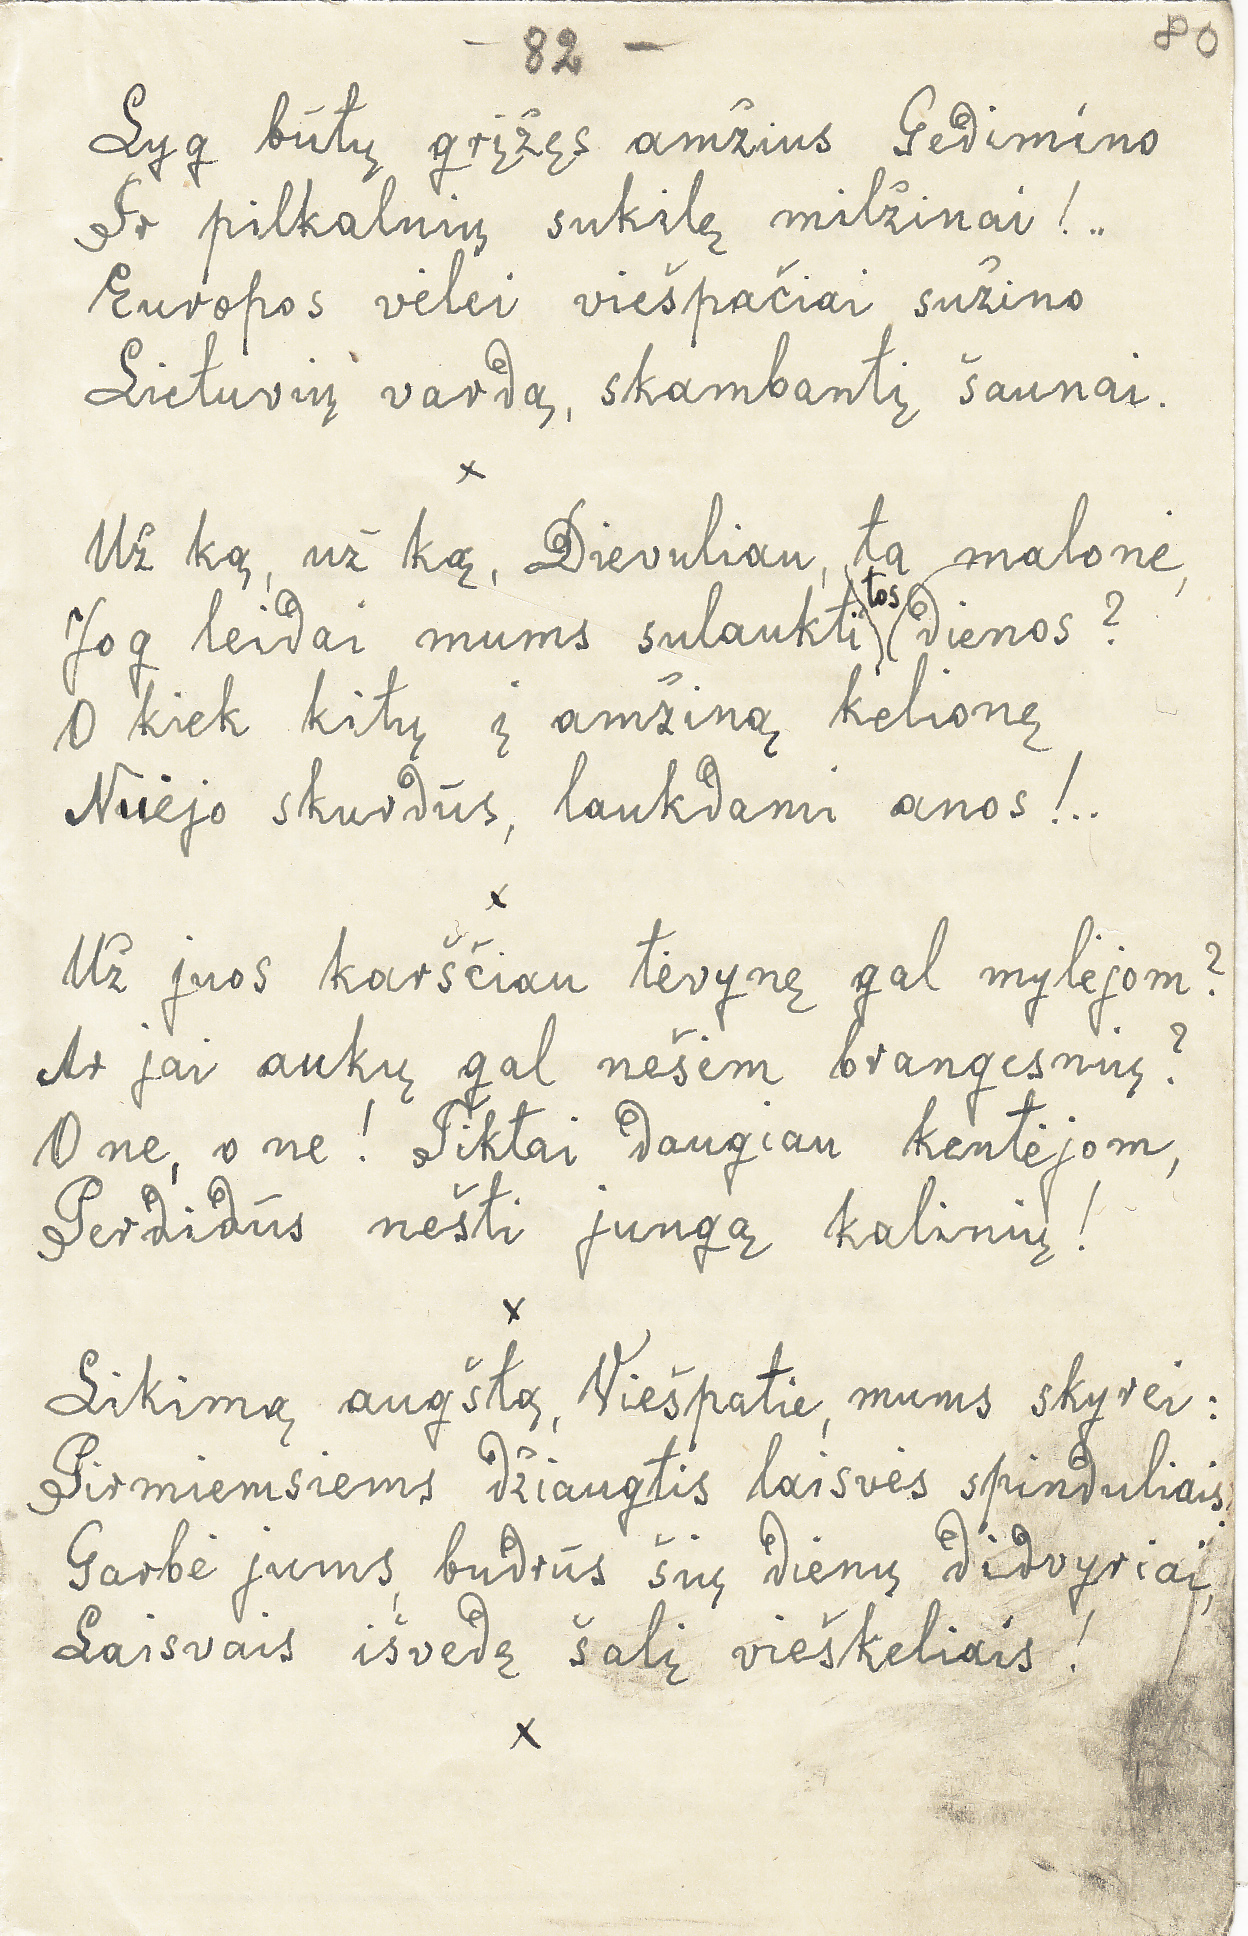 - 82 -
80
Lyg būtų grįžęs amžius Gedimino
Ir pilkalnių sukilę milžinai!..
Europos vėlei viešpačiai sužino
Lietuvių vardą, skambantį šaunai.
x
Už ką, už ką, Dievuliau, ta malonė,
Jog leidai mums sulaukti tos dienos?
O kiek kitų į amžiną kelionę
Nuėjo skurdūs, laukdami anos!..
x
Už juos karščiau tėvynę gal mylėjom?
Ar jai aukų gal nešėm brangesnių?
O ne, o ne! Tiktai daugiau kentėjom,
Perdidūs nešti jungą kalinių!
x
Likimą augštą, Viešpatie, mums skyrei:
Pirmiemsiems džiaugtis laisvės spinduliais.
Garbė jums, budrūs šių dienų didvyriai,
Laisvais išvedę šalį vieškeliais!
x